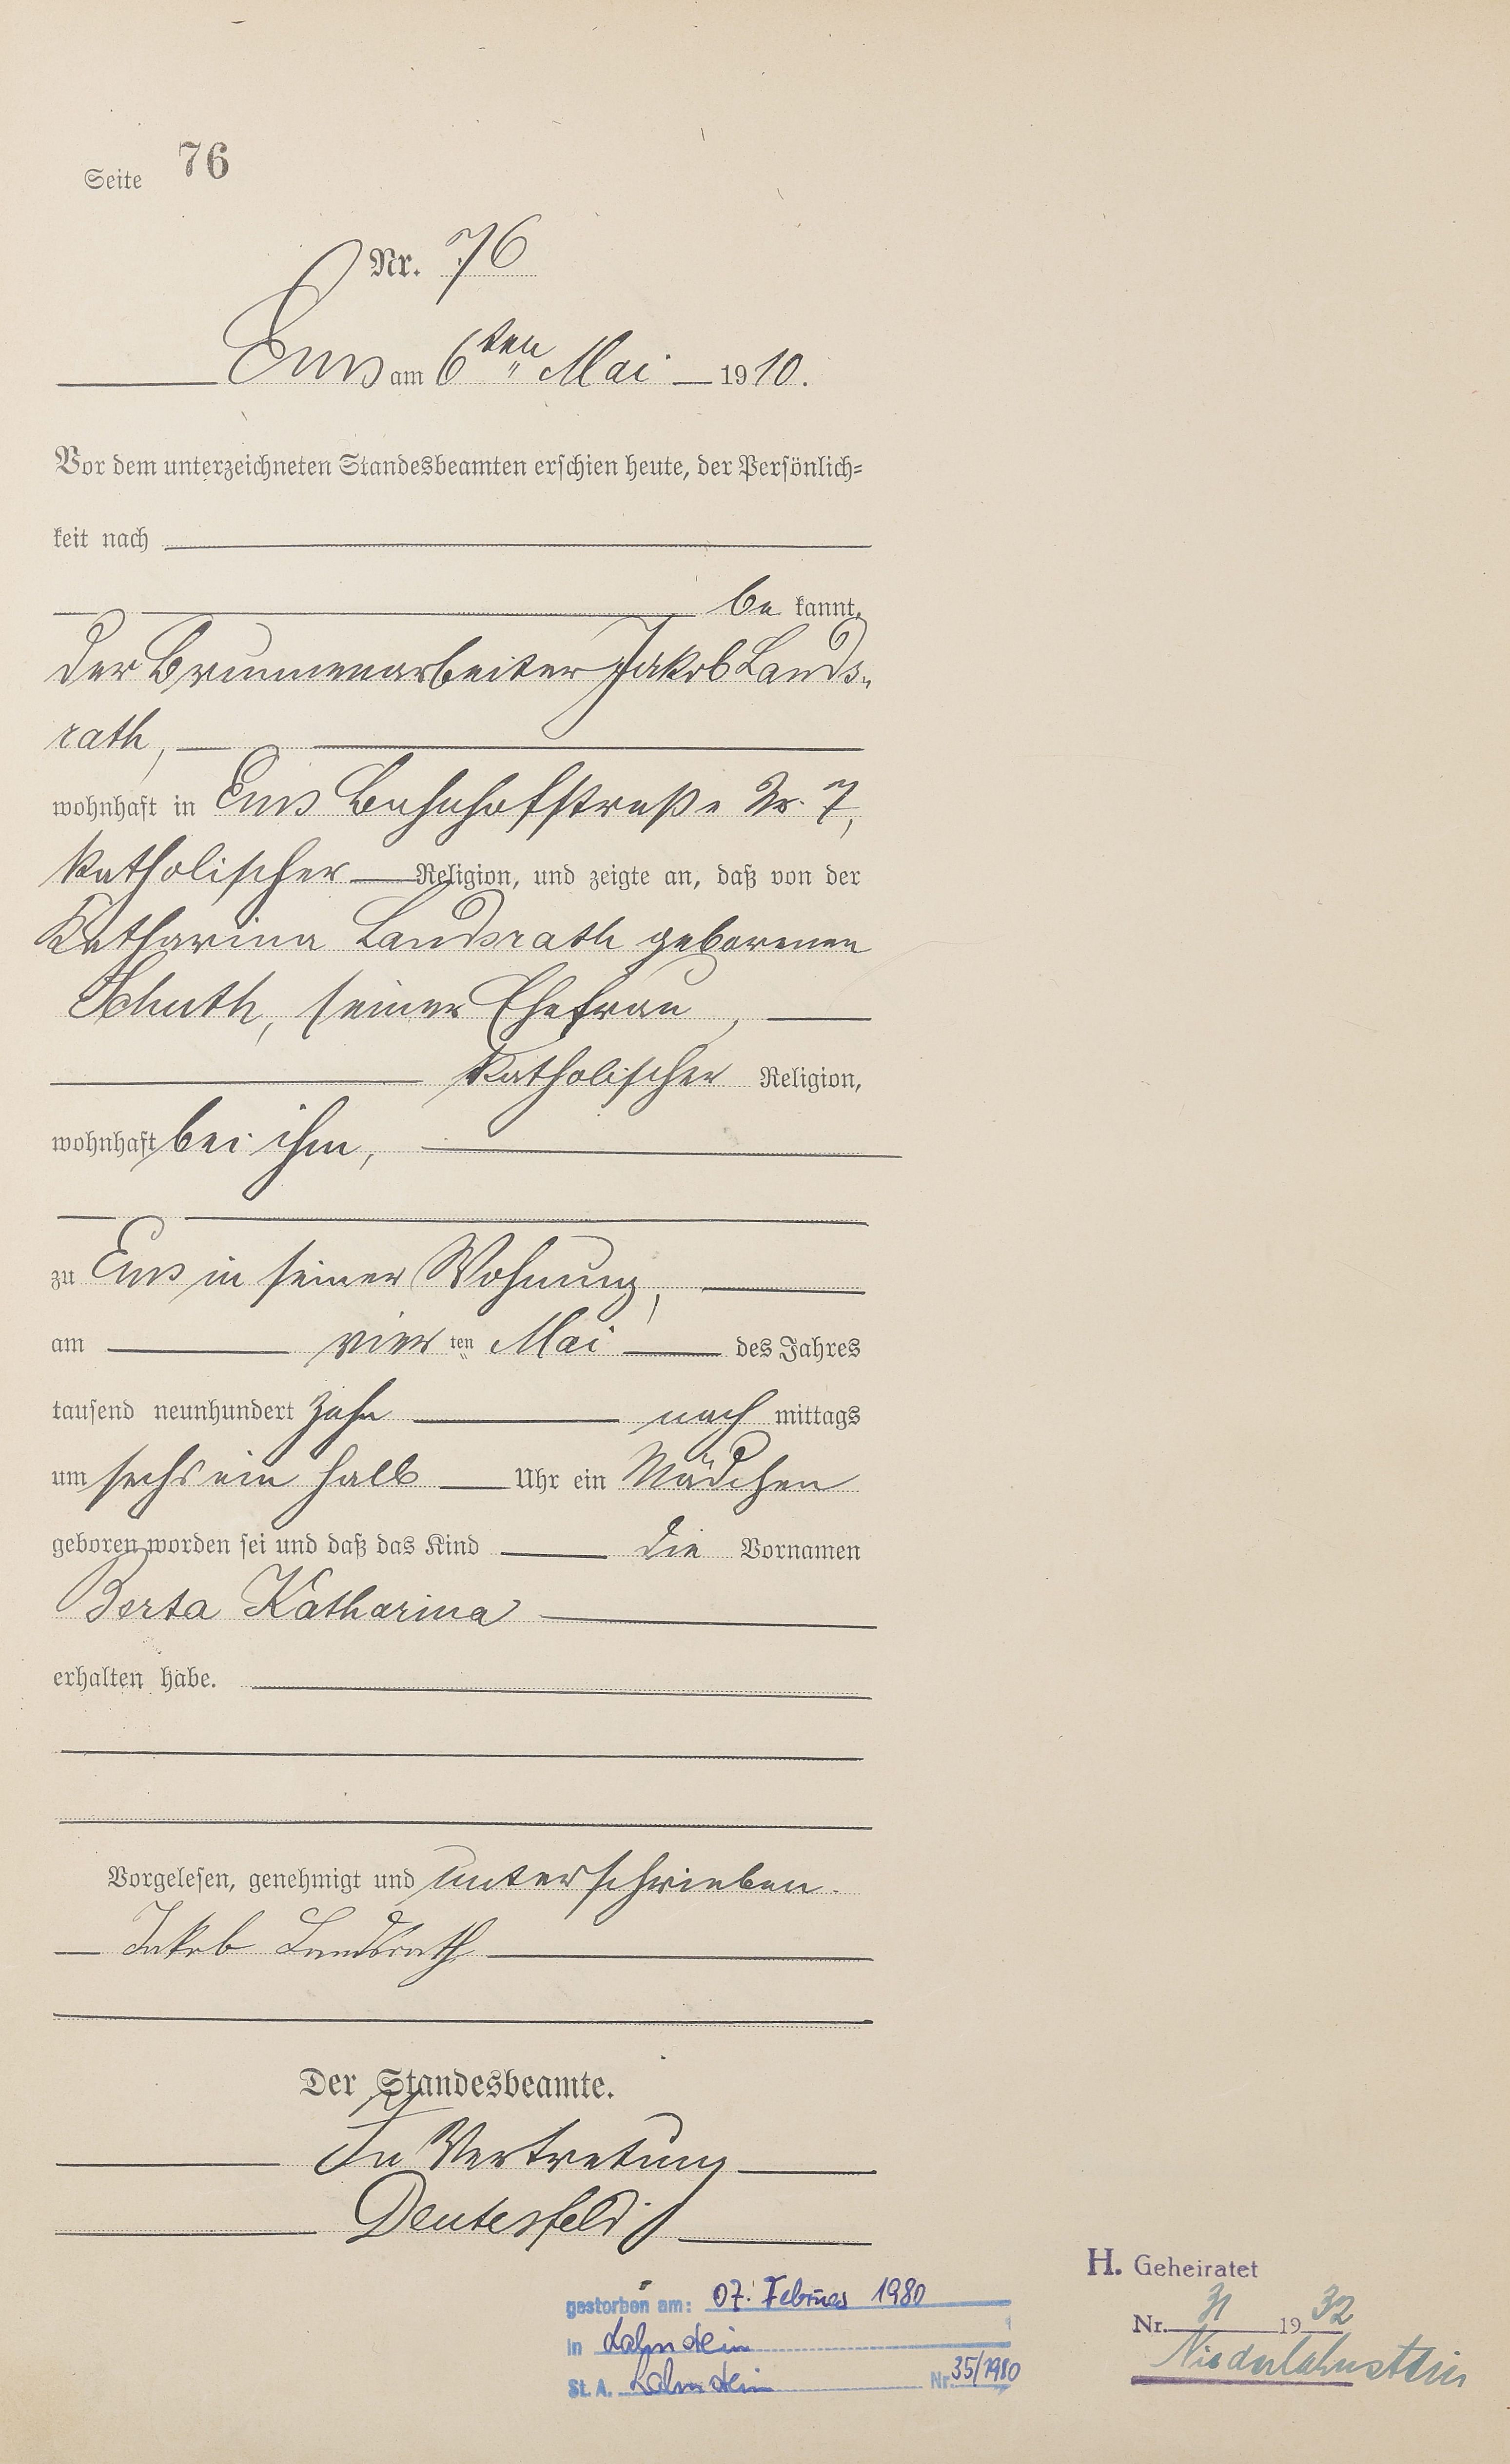 Seite 76
Nr. 76
Ems am 6ten Mai 1910.
Vor dem unterzeichneten Standesbeamten erschien heute, der Persönlich=
keit nach
be kannt,
der Brunnenarbeiter Jakob Lands-
rath,
wohnhaft in Ems Bahnhofstraße Nr. 7,
katholischer Religion, und zeigte an, daß von der
Katharina Landsrath geborenen
Schuth, seiner Ehefrau,
katholischer Religion,
wohnhaft bei ihm,
zu Ems in seiner Wohnung,
am vier ten Mai des Jahres
tausend neunhundert zehn nach mittags
um sechs ein halb Uhr ein Mädchen
geboren worden sei und daß das Kind die Vornamen
Berta Katharina
erhalten habe.
Vorgelesen, genehmigt und unterschrieben.
Jakob Landsrath
Der Standesbeamte.
In Vertretung
Deutesfeld
gestorben am: 07. Februar 1980
in Lahnstein
St. A. Lahnstein Nr. 35/1980
H. Geheiratet
Nr. 31 1932
Niederlahnstein